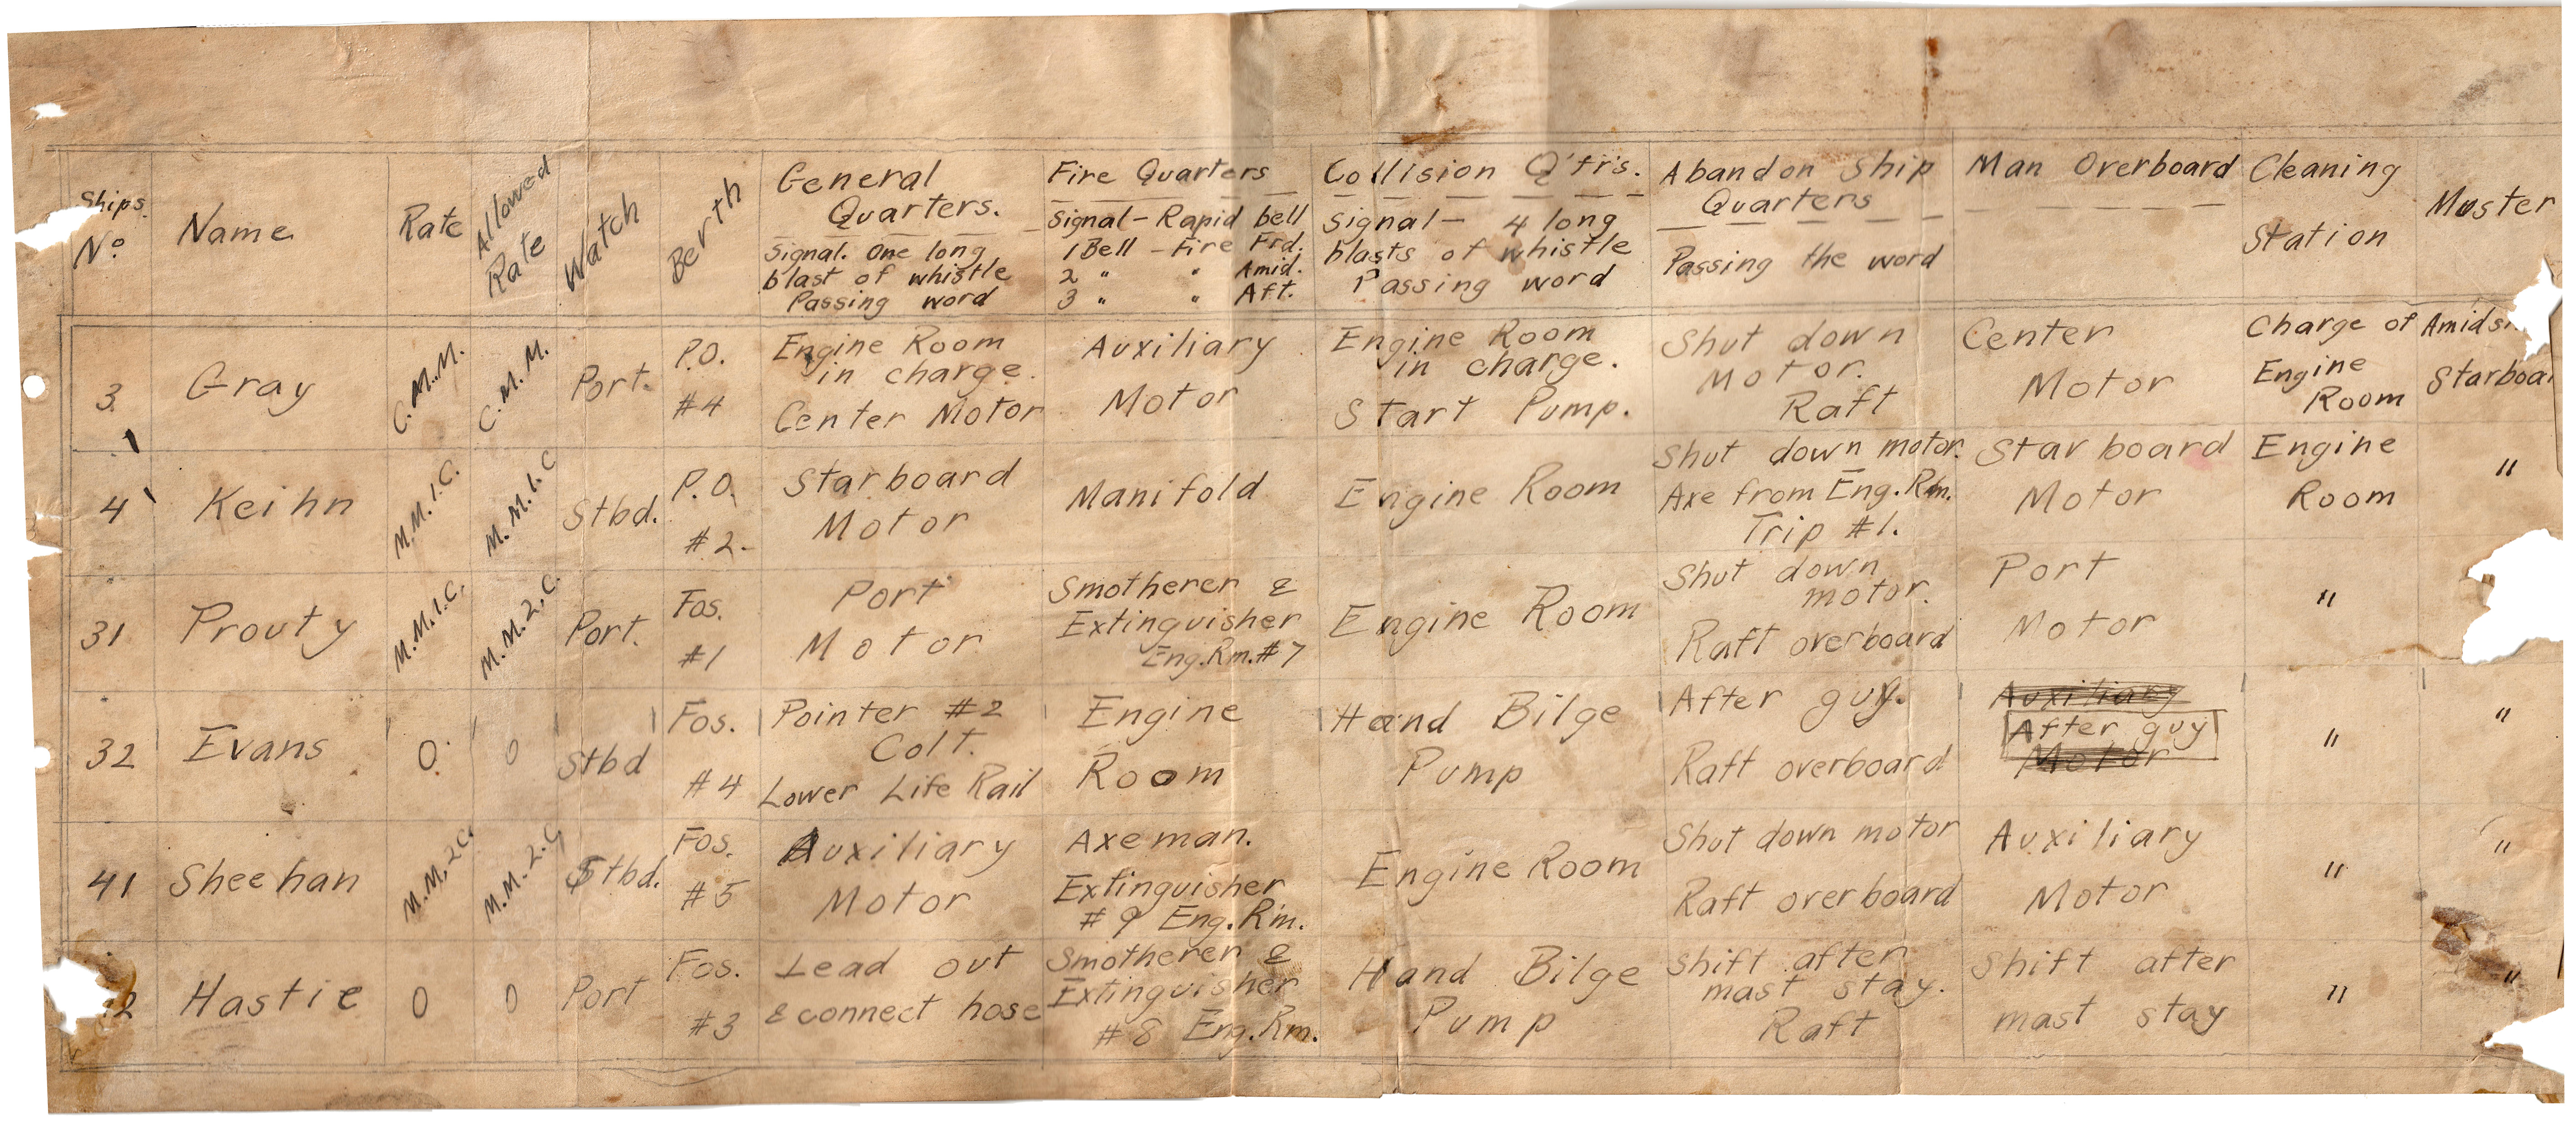 Ships. Nº
Name
Rate
Allowed Rate
Watch
Berth
General Quarters.
Signal. One long
blast of whistle
Passing word
Fire Quarters
Signal - Rapid bell
1 Bell - Fire Frd.
2 " " Amid.
3 " " Aft.
Collision Q'trs.
Signal - 4 long
blasts of whistle
Passing word
Abandon Ship
Quarters
Passing the word
Man Overboard
Cleaning
Station
Muster
3
Gray
C.M.M.
C.M.M.
Port.
P.O.
#4
Engine Room
in charge.
Center Motor
Auxiliary
Motor
Engine Room
in charge.
Start Pump.
Shut down
Motor.
Raft
Center
Motor
Charge of
Engine
Room
Amids
Starboar
4
Keihn
M.M.1.C.
M.M.1.C
Stbd.
P.O.
#2-
Starboard
Motor
Manifold
Engine Room
Shut down motor.
Axe from Eng.Rm.
Trip #1.
Starboard
Motor
Engine
Room
"
31
Prouty
M.M.1.C.
M.M.2.C.
Port.
Fos.
#1
Port
Motor
Smotherer &
Extinguisher
Eng.Rm.#7
Engine Room
Shut down
motor.
Raft overboard
Port
Motor
"
32
Evans
O.
O
Stbd
Fos.
#4
Pointer #2
Colt.
Lower Life Rail
Engine
Room
Hand Bilge
Pump
After guy.
Raft overboard
Auxiliary
After guy
Motor
"
"
41
Sheehan
M.M.2C.
M.M.2.C
Stbd.
Fos.
#5
Auxiliary
Motor
Axeman.
Extinguisher
#9 Eng.Rm.
Engine Room
Shut down motor
Raft overboard
Auxiliary
Motor
"
"
2
Hastie
O
O
Port
Fos.
#3
Lead out
& connect hose
Smotherer &
Extinguisher
#8 Eng.Rm.
Hand Bilge
Pump
Shift after
mast stay.
Raft
Shift after
mast stay
"
"